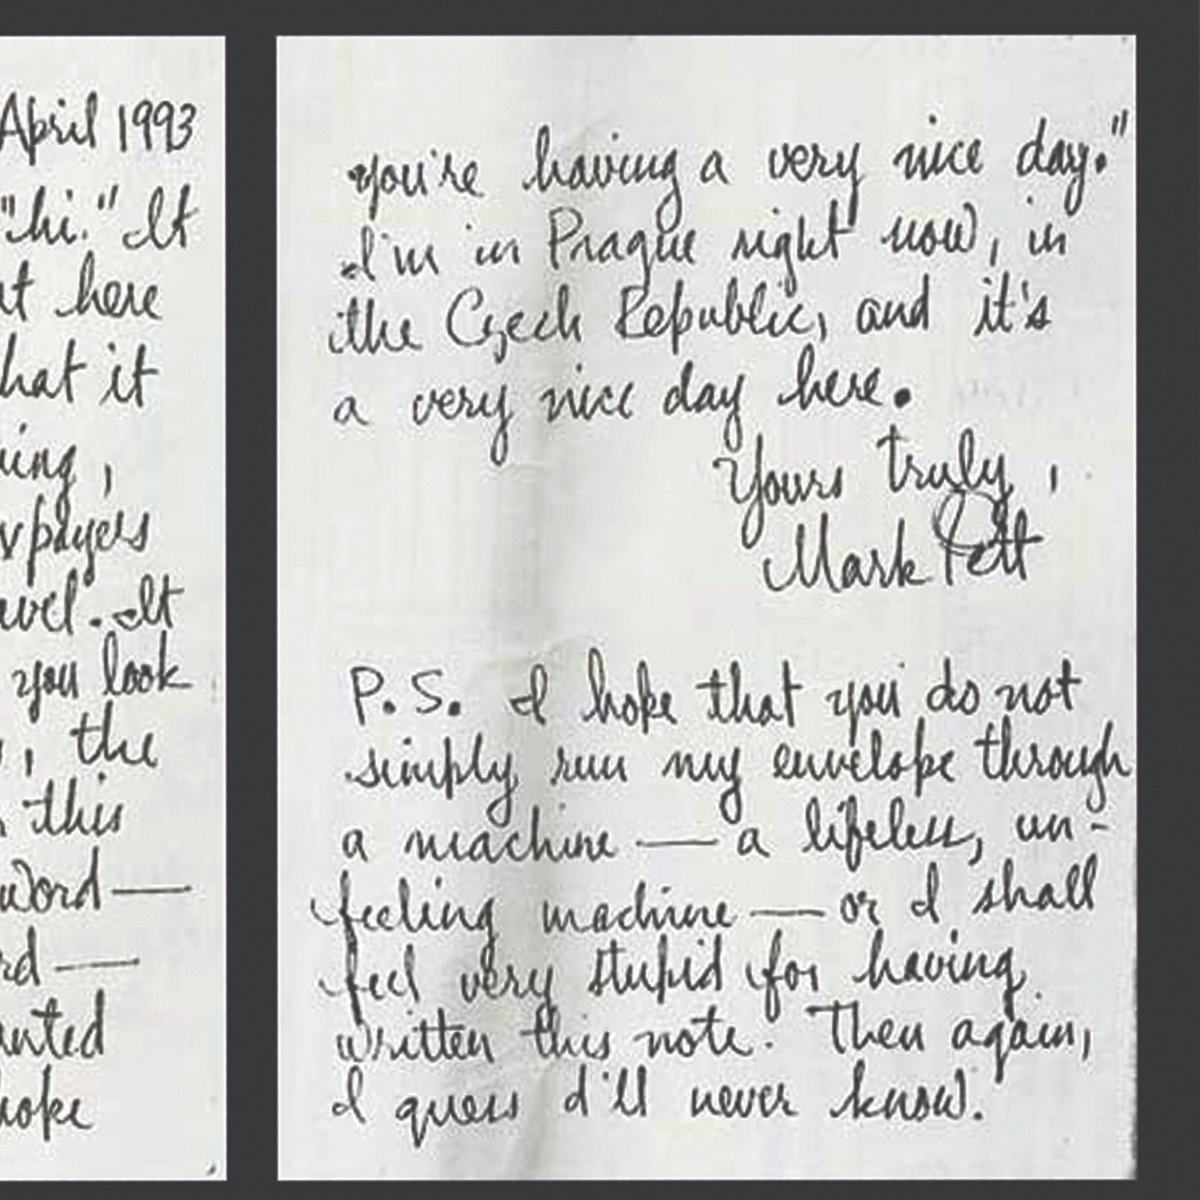 April 1993
"hi." It
at here
hat it
ing,
xpayers
avel. It
you look
, the
this
word —
rd —
anted
hope
you're having a very nice day."
I'm in Prague right now, in
the Czech Republic, and it's
a very nice day here.
Yours truly,
Mark Pett
P.S. I hope that you do not
simply run my envelope through
a machine — a lifeless, un-
feeling machine — or I shall
feel very stupid for having
written this note. Then again,
I guess I'll never know.